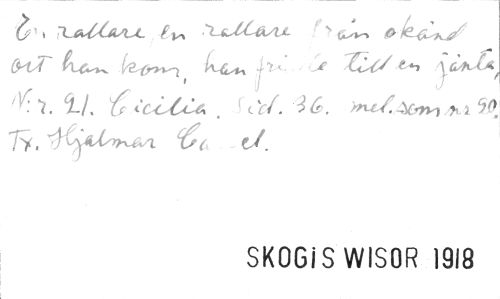 En rallare, en rallare från okänd
ort han kom, han friade till en jänta,
N:r. 21. Cicilia. Sid. 36. mel. som nr 90.
Tx. Hjalmar
SKOGIS WISOR 1918